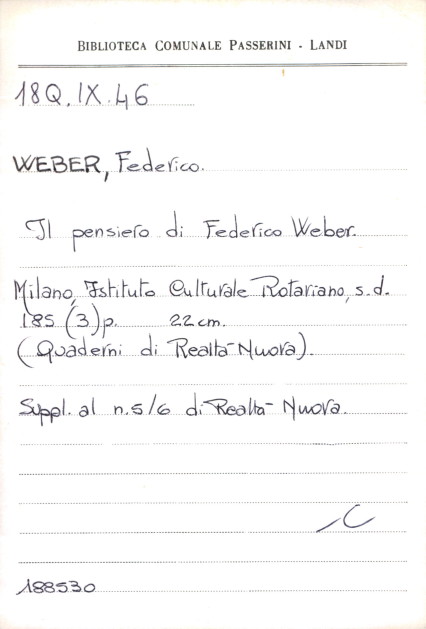 BIBLIOTECA COMUNALE PASSERINI - LANDI
18Q.IX.46
WEBER, Federico.
Il pensiero di Federico Weber.
Milano, Istituto Culturale Rotariano, s.d.
185 (3)p. 22cm.
(Quaderni di Realtà Nuova).
Suppl. al n.5/6 di Realtà Nuova.
188530